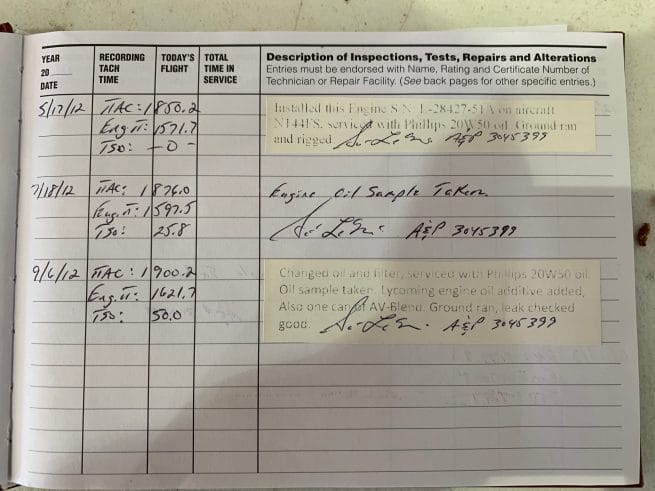 YEAR RECORDING TODAY'S TOTAL Description of Inspections, Tests, Repairs and Alterations
20___ TACH FLIGHT TIME IN Entries must be endorsed with Name, Rating and Certificate Number of
DATE TIME SERVICE Technician or Repair Facility. (See back pages for other specific entries.)
5/17/12 TTAC: 1850.2 Installed this Engine S/N: L-28427-51A on aircraft
Eng.TT: 1571.7 N144FS, serviced with Phillips 20W50 oil. Ground ran
TSO: -0- and rigged. A&P 3045399
7/18/12 TTAC: 1876.0 Engine Oil Sample Taken
Eng.TT: 1597.5
TSO: 25.8 A&P 3045399
9/6/12 TTAC: 1900.2 Changed oil and filter, serviced with Phillips 20W50 oil.
Eng.TT: 1621.7 Oil sample taken. Lycoming engine oil additive added,
TSO: 50.0 Also one can of AV-Blend. Ground ran, leak checked
good. A&P 3045399